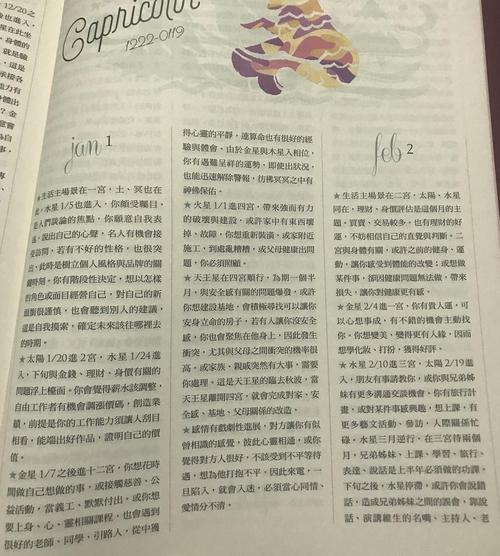 12/20之
Capricorn
1222-0119
jan 1
★生活主場景在一宮，土、冥也在
此，水星1/5也進入，你頗受矚目，
是人們談論的焦點，你願意自我表
達，說出自己的心聲，名人有機會接
受訪問，若有不好的性格，也很突
出，此時是樹立個人風格與品牌的關
鍵時刻，你有階段性決定，想以怎樣
的角色或面目經營自己，對自己的新
面銜很謹慎，也會聽到別人的建議，
這是自我摸索，確定未來該往哪裡去
的時期。
★太陽1/20進2宮，水星1/24進
入，下旬與金錢、理財、身價有關的
問題浮上檯面。你會覺得薪水該調整，
自由工作者有機會調漲價碼，創造業
績，前提是你的工作能力須讓人刮目
相看，能端出好作品，證明自己的價
值。
★金星1/7之後進十二宮，你想花時
間做自己想做的事，或接觸慈善、公
益活動，當義工、默默付出，或你想
要上身、心、靈相關課程，也會遇到
很好的老師、同學、引路人，從中獲
得心靈的平靜，連算命也有很好的經
驗與體會。由於金星與木星入相位，
你有遇難呈祥的運勢，即使出狀況，
也能迅速解除警報，彷彿冥冥之中有
神佛保佑。
★火星1/1進四宮，帶來強而有力
的破壞與建設，或許家中有東西壞
掉、故障，你想重新裝潢，或家附近
施工，到處亂糟糟，或父母健康出問
題，你必須照顧。
★天王星在四宮順行，為期一個半
月，與安全感有關的問題爆發，或許
你想建設基地，會積極尋找可以讓你
安身立命的房子，若有人讓你沒安全
感，你也會聚焦在他身上，因此發生
衝突，尤其與父母之間衝突的機率很
高，或家族、親戚突然有大事，需要
你處理。這是天王星的臨去秋波，當
天王星離開四宮，就會完成對家、安
全感、基地、父母關係的改造，
★感情有戲劇性進展，對方讓你有似
曾相識的感覺，彼此心靈相通，或你
覺得對方人很好，不該受到不平等待
遇，想為他打抱不平，因此來電，一
旦陷入，就會入迷，必須當心同情、
愛情分不清。
feb 2
★生活主場景在二宮，太陽、水星
同在，理財、身價評估是這個月的主
題。買賣、交易較多，也有理財的好
運，不妨相信自己的直覺與判斷。二
宮與身體有關，或許之前的健身、運
動，讓你感受到體能的改變；或想做
某件事，卻因健康問題無法做，帶來
損失，讓你對健康更有感。
★金星2/4進一宮，你有貴人運，可
以心想事成，有不錯的機會主動找
你。你想變美、變得更有人緣，因而
想學化妝、打扮，獲得好評。
★水星2/10進三宮，太陽2/19進
入，朋友有事請教你，或你與兄弟姊
妹有更多溝通交談機會，你有旅行計
畫，或對某件事感興趣，想上課，有
更多藝文活動、參訪，人際關係忙
碌。水星三月逆行，在三宮待兩個
月，兄弟姊妹、上課、學習、旅行、
表達、說話是上半年必須做的功課。
下旬之後，水星停滯，或許你會說錯
話，造成兄弟姊妹之間的誤會，靠說
話、演講維生的名嘴、主持人、老